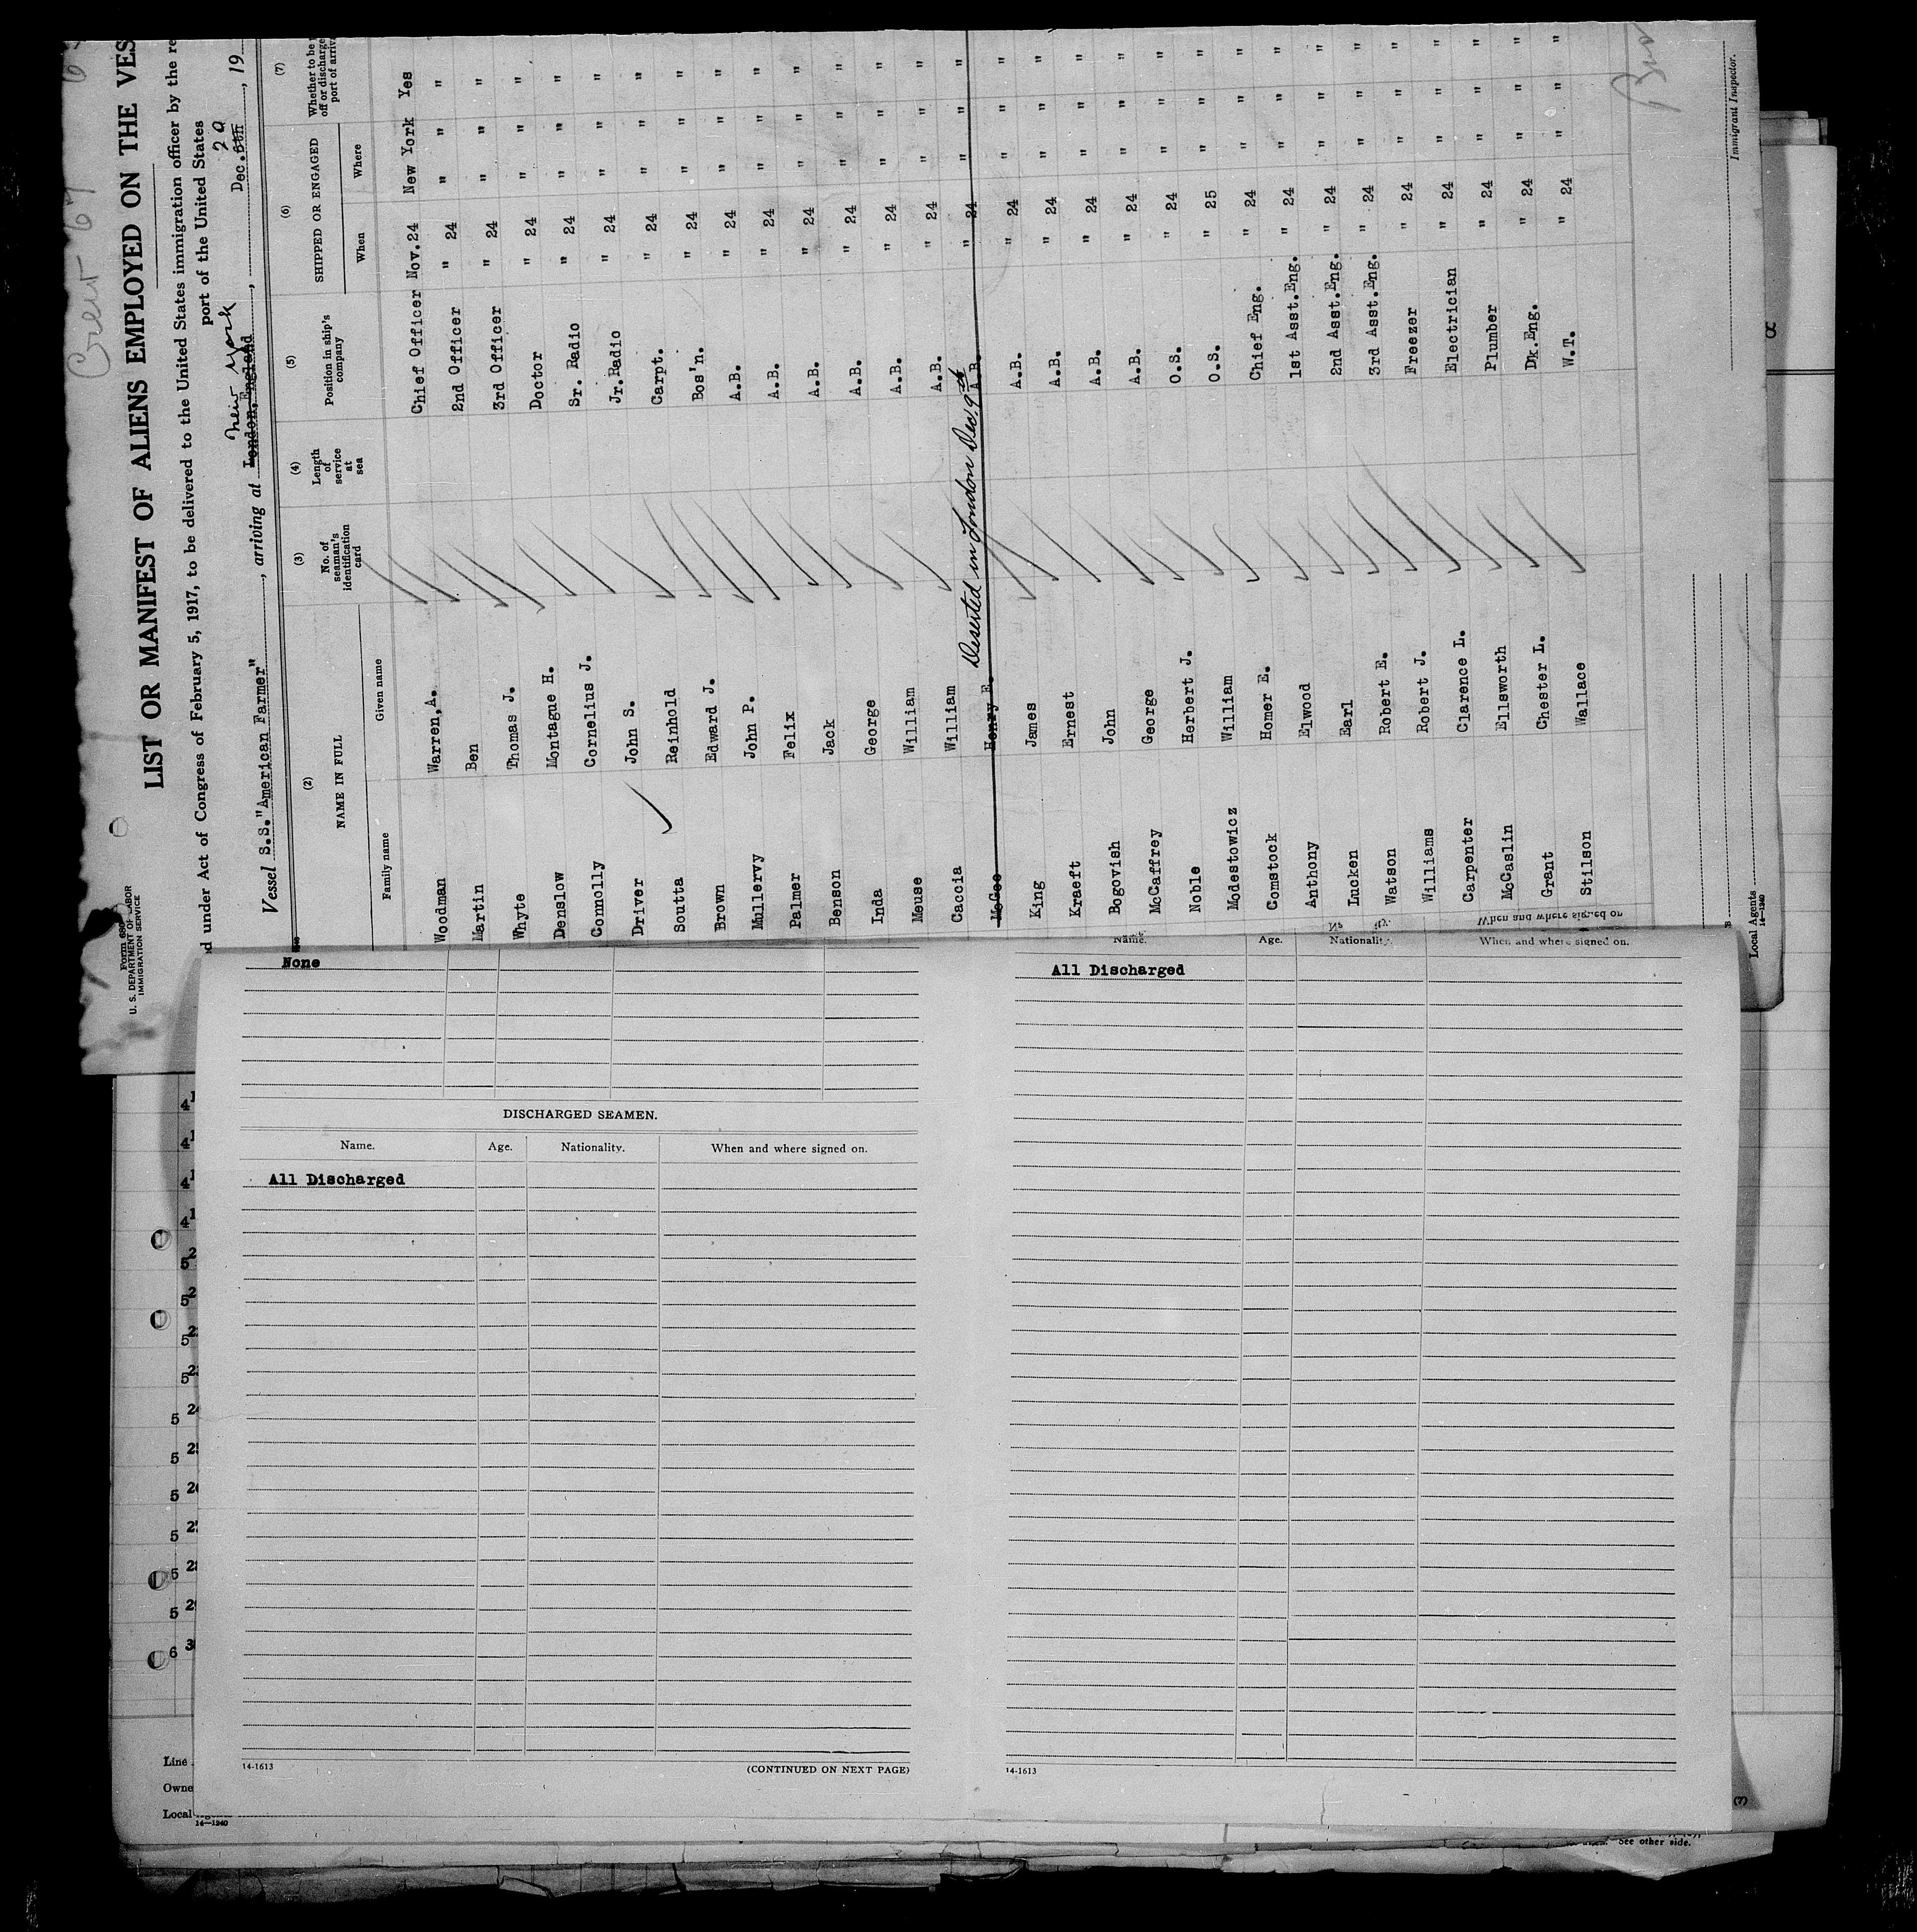 Crew
LIST OR MANIFEST OF ALIENS EMPLOYED ON THE VES
d under Act of Congress of February 5, 1917, to be delivered to the United States immigration officer by the re
port of the United States
Form 680
U. S. DEPARTMENT OF LABOR
IMMIGRATION SERVICE
New York 29
Vessel S.S."American Farmer", arriving at London, England, Dec. 8th, 19
(2) (3) (4) (5) (6) (7)
NAME IN FULL No. of seaman's identification card Length of service at sea Position in ship's company SHIPPED OR ENGAGED Whether to be off or discharge port of arriv
Family name Given name When Where
Woodman Warren,A. Chief Officer Nov.24 New York Yes
Martin Ben 2nd Officer " 24 " "
Whyte Thomas J. 3rd Officer " 24 " " "
Denslow Montague H. Doctor " 24 " " "
Connolly Cornelius J. Sr. Radio " 24 " " "
Driver John S. Jr.Radio " 24 " " "
Soutta Reinhold Carpt. " 24 " " "
Brown Edward J. Bos'n. " 24 " " "
Mullervy John P. A.B. " 24 " " "
Palmer Felix A.B. " 24 " " "
Benson Jack A.B. " 24 " " "
Inda George A.B. " 24 " " "
Meuse William A.B. " 24 " " "
Caccia William A.B. " 24 " " "
Deserted in London Dec. 9th
McGee Henry E. A.B. " 24 " " "
King James A.B. " 24 " " "
Kraeft Ernest A.B. " 24 " " "
Bogovish John A.B. " 24 " " "
McCaffrey George A.B. " 24 " " "
Noble Herbert J. O.S. " 24 " " "
Modestowicz William O.S. " 25 " " "
Comstock Homer E. Chief Eng. " 24 " " "
Anthony Elwood 1st Asst.Eng. " 24 " " "
Lucken Earl 2nd Asst.Eng. " 24 " " "
Watson Robert E. 3rd Asst.Eng. " 24 " " "
Williams Robert J. Freezer " 24 " " "
Carpenter Clarence L. Electrician " 24 " " "
McCaslin Ellsworth Plumber " 24 " " "
Grant Chester L. Dk.Eng. " 24 " " "
Stilson Wallace W.T. " 24 " " "
Immigrant Inspector.
Local Agents
14-1240
None
DISCHARGED SEAMEN.
Name. Age. Nationality. When and where signed on.
All Discharged
14-1613 (CONTINUED ON NEXT PAGE)
When and where signed on
Name. Age. Nationality. When and where signed on.
All Discharged
14-1613
Line
Owne
Local
14-1240
(7)
See other side.